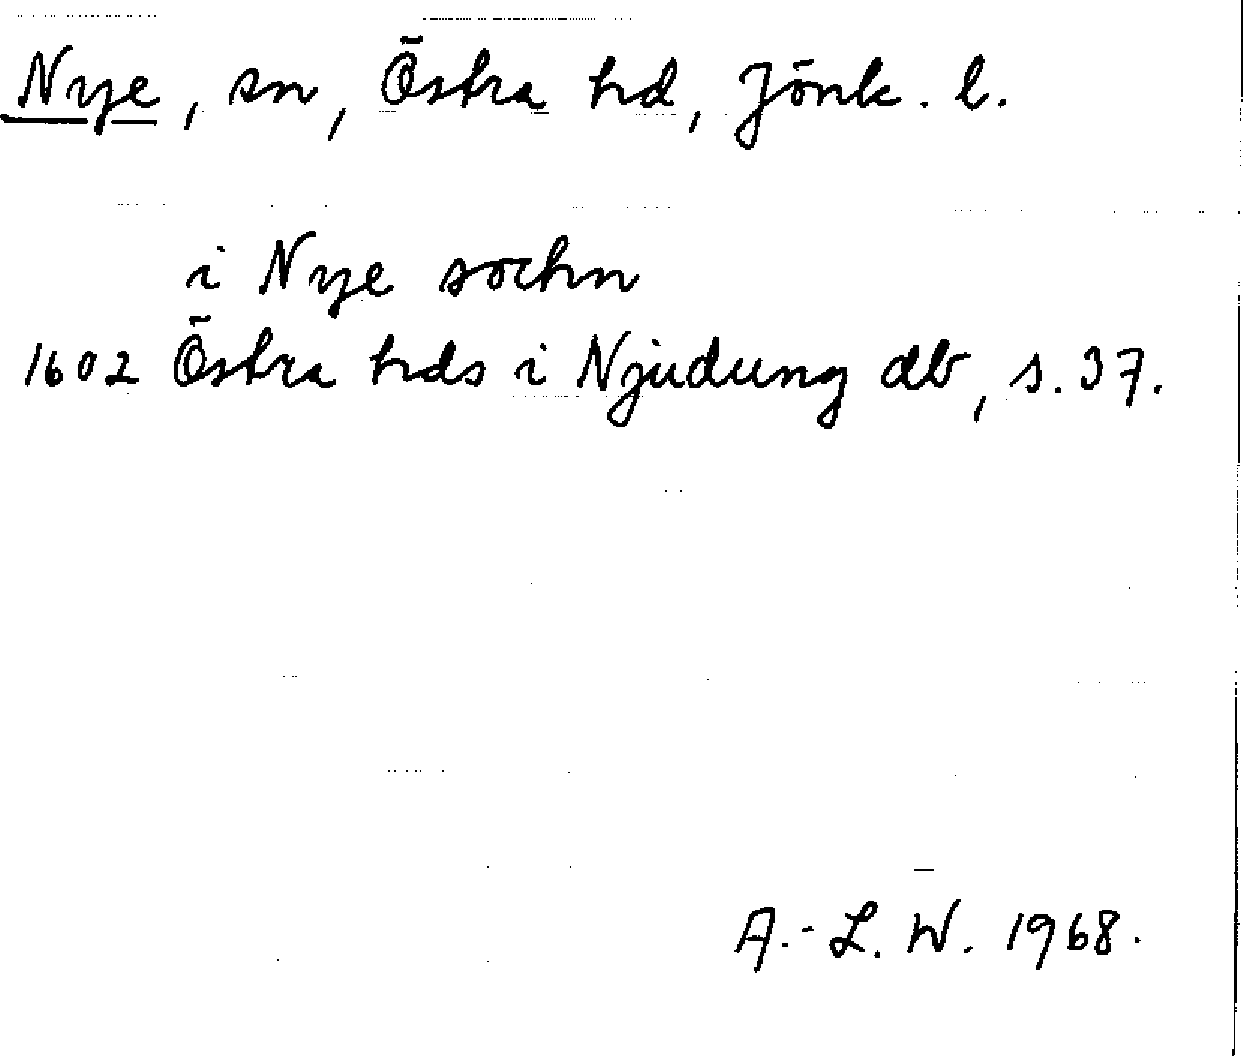 Nye, sn, Östra hd, Jönk. l.
i Nye sochn
1602 Östra hds i Njudung db, s. 37.
A.-L. W. 1968.